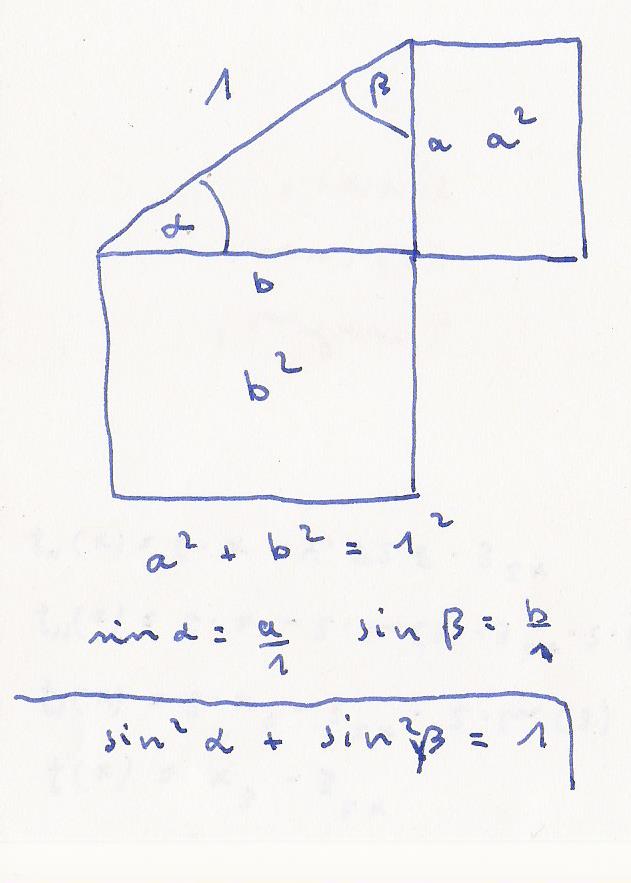 1
β
a a²
α
b
b²
a² + b² = 1²
sin α = a/1 sin β = b/1
sin² α + sin² β = 1